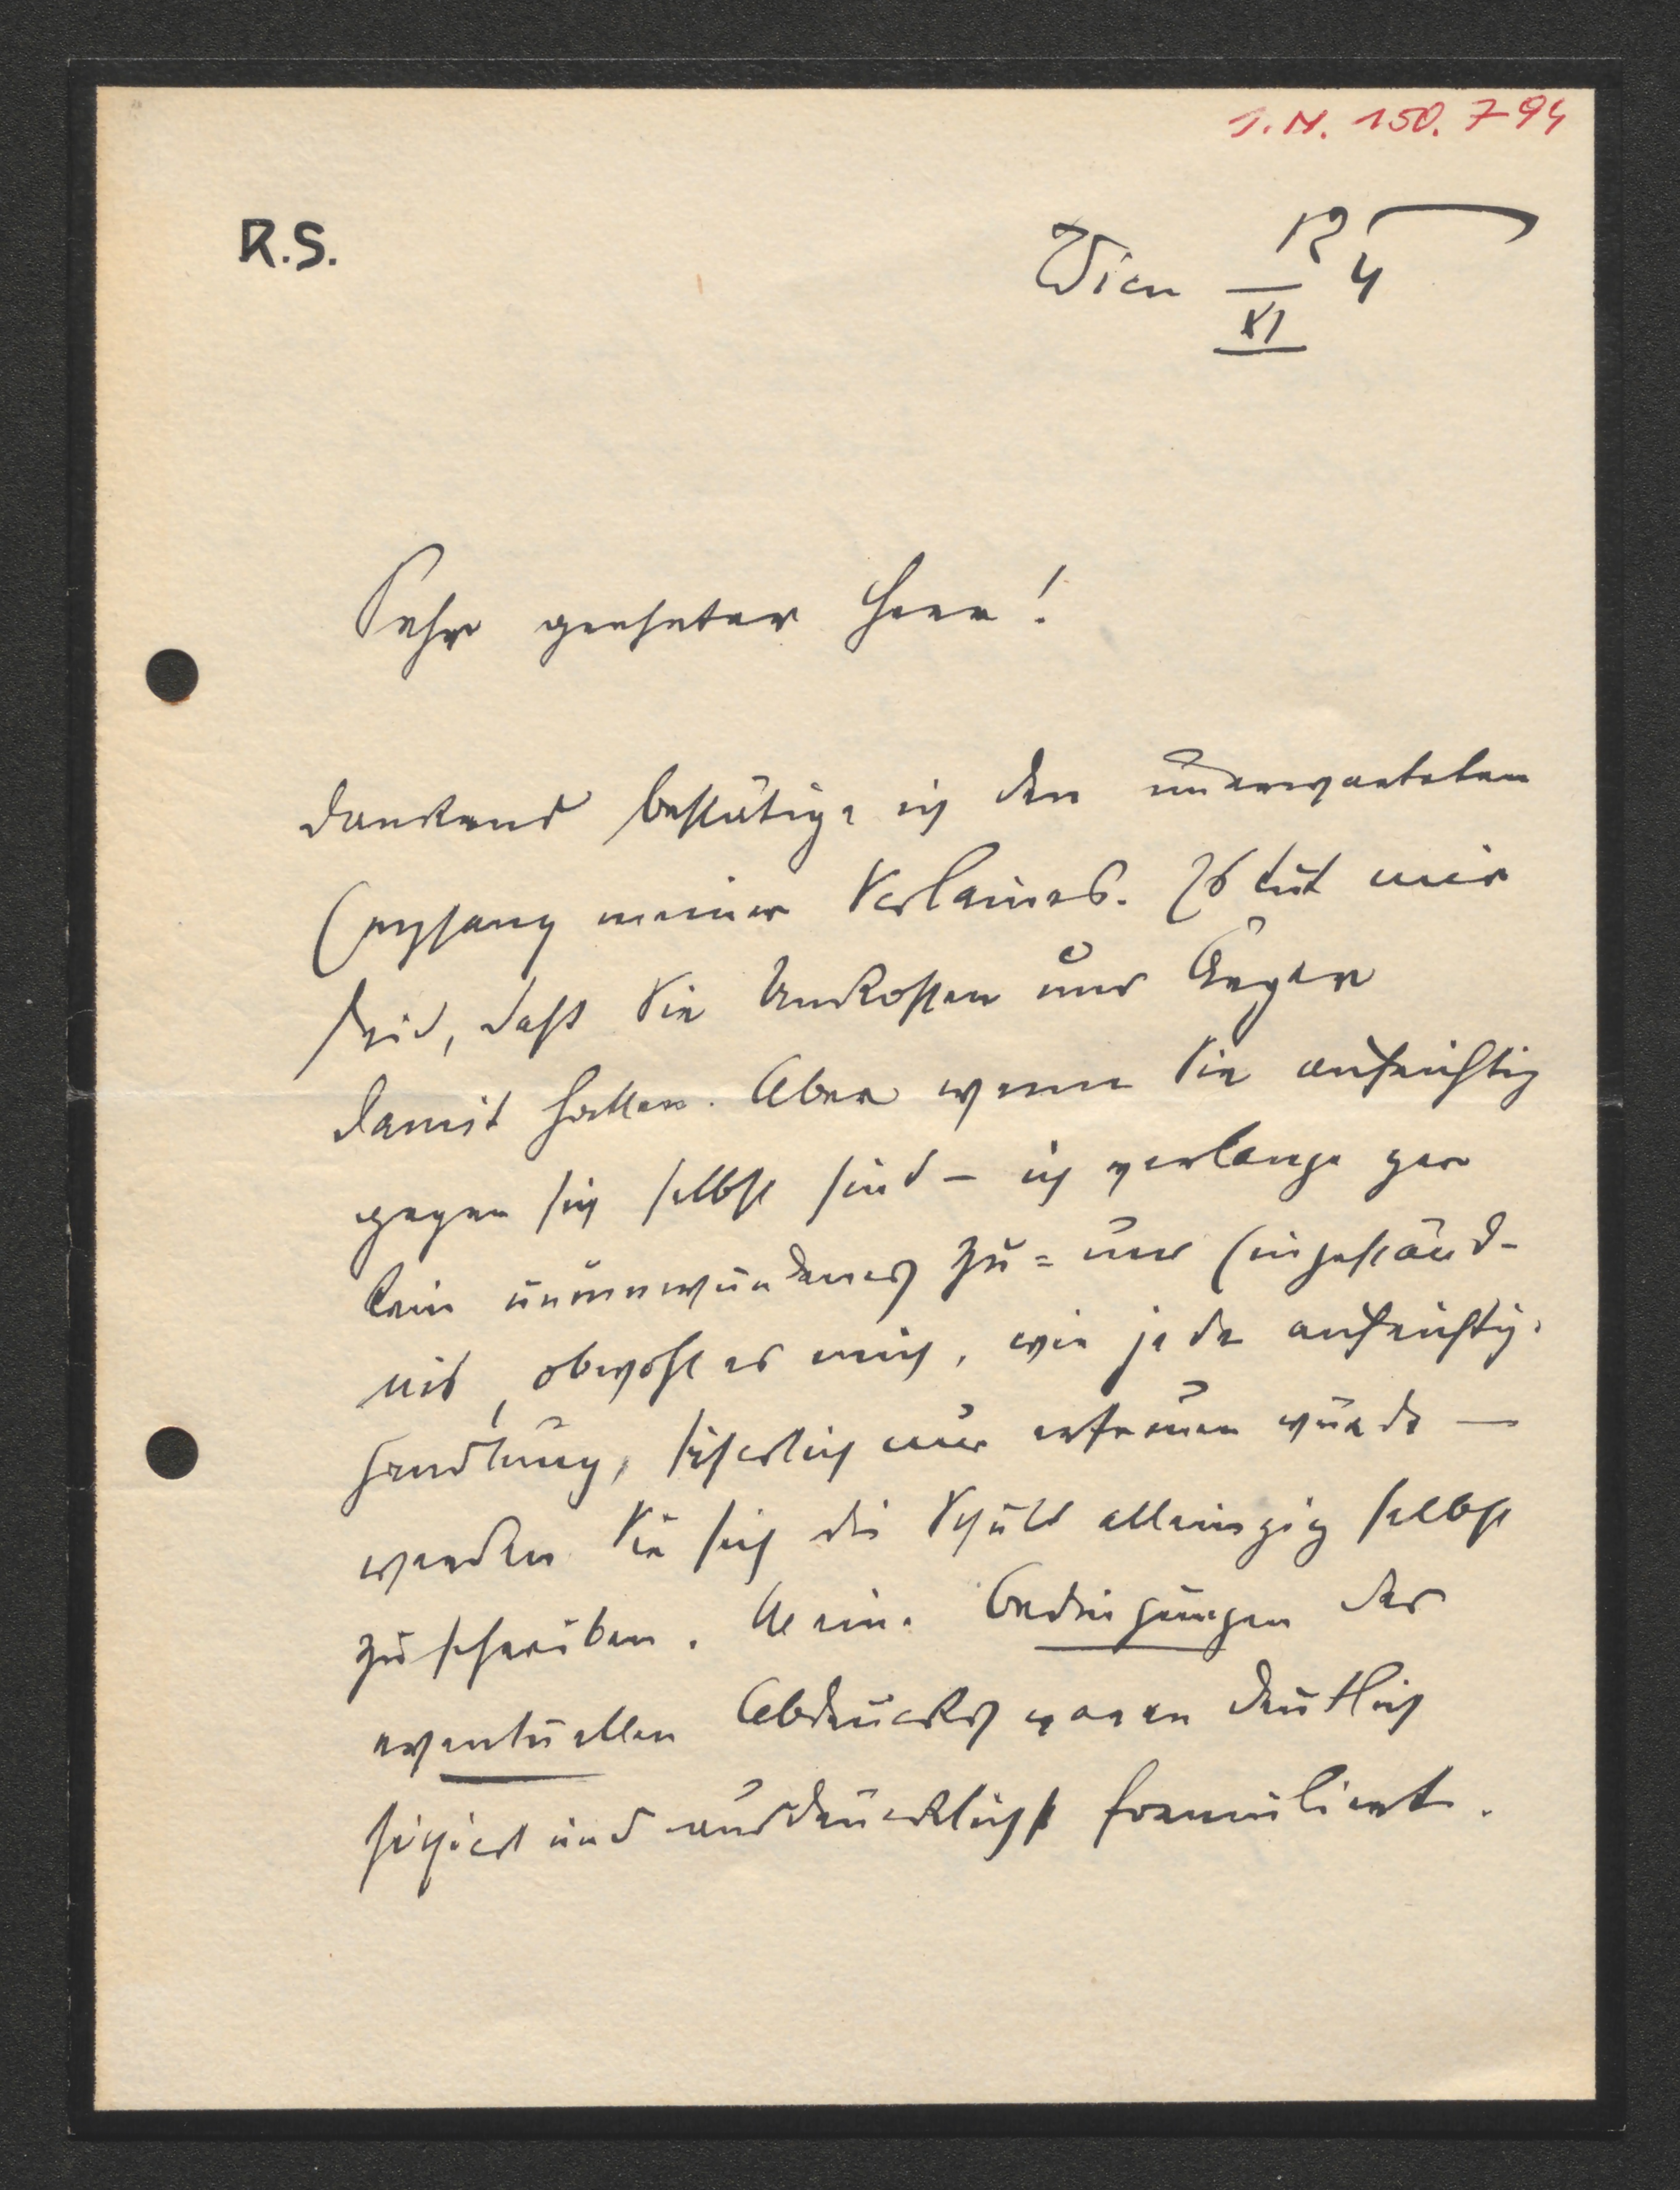 I.N. 150.794
R.S.
Wien 12 4
XI
Sehr geehrter Herr!
dankend bestätige ich den unerwarteten
Empfang meiner Verlaines. Es tut mir
leid, dass Sie Unkosten und Ärger
damit hatten. Aber wenn Sie aufrichtig
gegen sich selbst sind – ich verlange gar
kein unumwundenes Zu- und Eingeständ-
nis, obwohl es mich, wie jede aufrichtige
Handlung, sicherlich nur erfreuen würde —
werden Sie sich die Schuld alleinzig selbst
zuschreiben. Meine Bedingungen des
eventuellen Abdruckes waren deutlich
fixiert und ausdrücklichst formuliert.